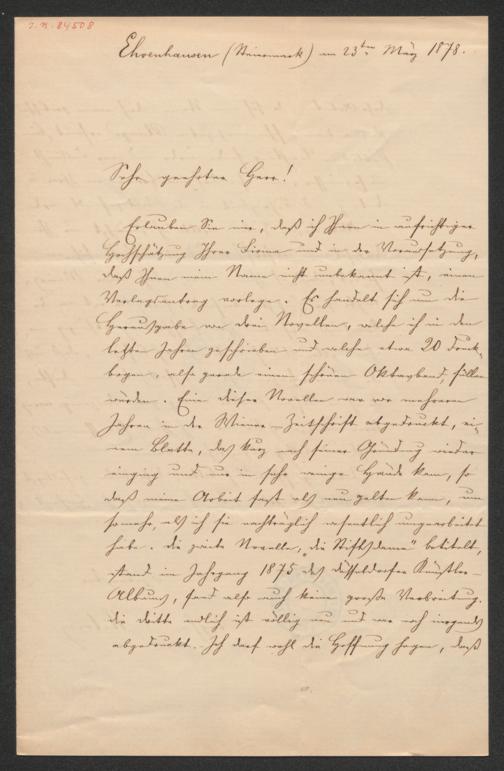 J.N. 84508
Ehrenhausen (Steiermark) am 23ten März 1878.
Sehr geehrter Herr!
Erlauben Sie mir, daß ich Ihnen in aufrichtiger
Hochschätzung Ihrer Firma und in der Voraussetzung,
daß Ihnen mein Name nicht unbekannt ist, einen
Verlagsantrag vorlege. Es handelt sich um die
Herausgabe von drei Novellen, welche ich in den
letzten Jahren geschrieben und welche etwa 20 Druck-
bogen, also gerade einen schönen Oktavband, füllen
würden. Eine dieser Novellen war vor mehreren
Jahren in der Wiener Zeitschrift abgedruckt, ei-
nem Blatte, das kurz nach seiner Gründung wieder
einging und nur in sehr wenige Hände kam, so
daß meine Arbeit fast als neu gelten kann, um
somehr, als ich sie nachträglich wesentlich umgearbeitet
habe. Die zweite Novelle, "die Stiftsdame" betitelt,
stand im Jahrgang 1875 des Düsseldorfer Künstler-
Albums, fand also auch keine große Verbreitung.
Die dritte endlich ist völlig neu und war noch nirgends
abgedruckt. Ich darf wohl die Hoffnung hegen, daß